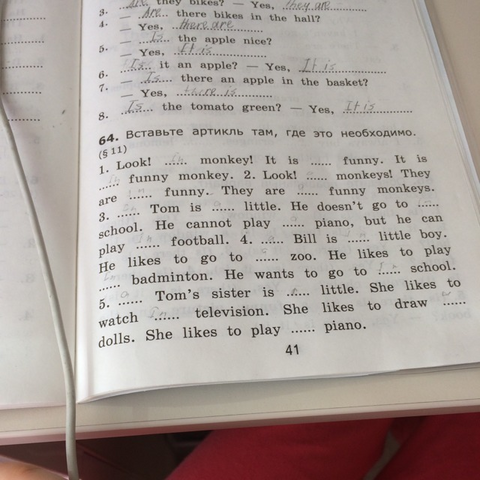 3. Are they bikes? — Yes, they are
— Are there bikes in the hall?
4. — Yes, there are
— Is the apple nice?
5. — Yes, It is
Is it an apple? — Yes, It is
6. — Is there an apple in the basket?
7. — Yes, there is
8. Is the tomato green? — Yes, It is
64. Вставьте артикль там, где это необходимо.
(§ 11)
1. Look! ...... monkey! It is ...... funny. It is
...... funny monkey. 2. Look! ...... monkeys! They
are ...... funny. They are ...... funny monkeys.
3. ...... Tom is ...... little. He doesn't go to ......
school. He cannot play ...... piano, but he can
play ...... football. 4. ...... Bill is ...... little boy.
He likes to go to ...... zoo. He likes to play
...... badminton. He wants to go to ...... school.
5. ...... Tom's sister is ...... little. She likes to
watch ...... television. She likes to draw ......
dolls. She likes to play ...... piano.
41